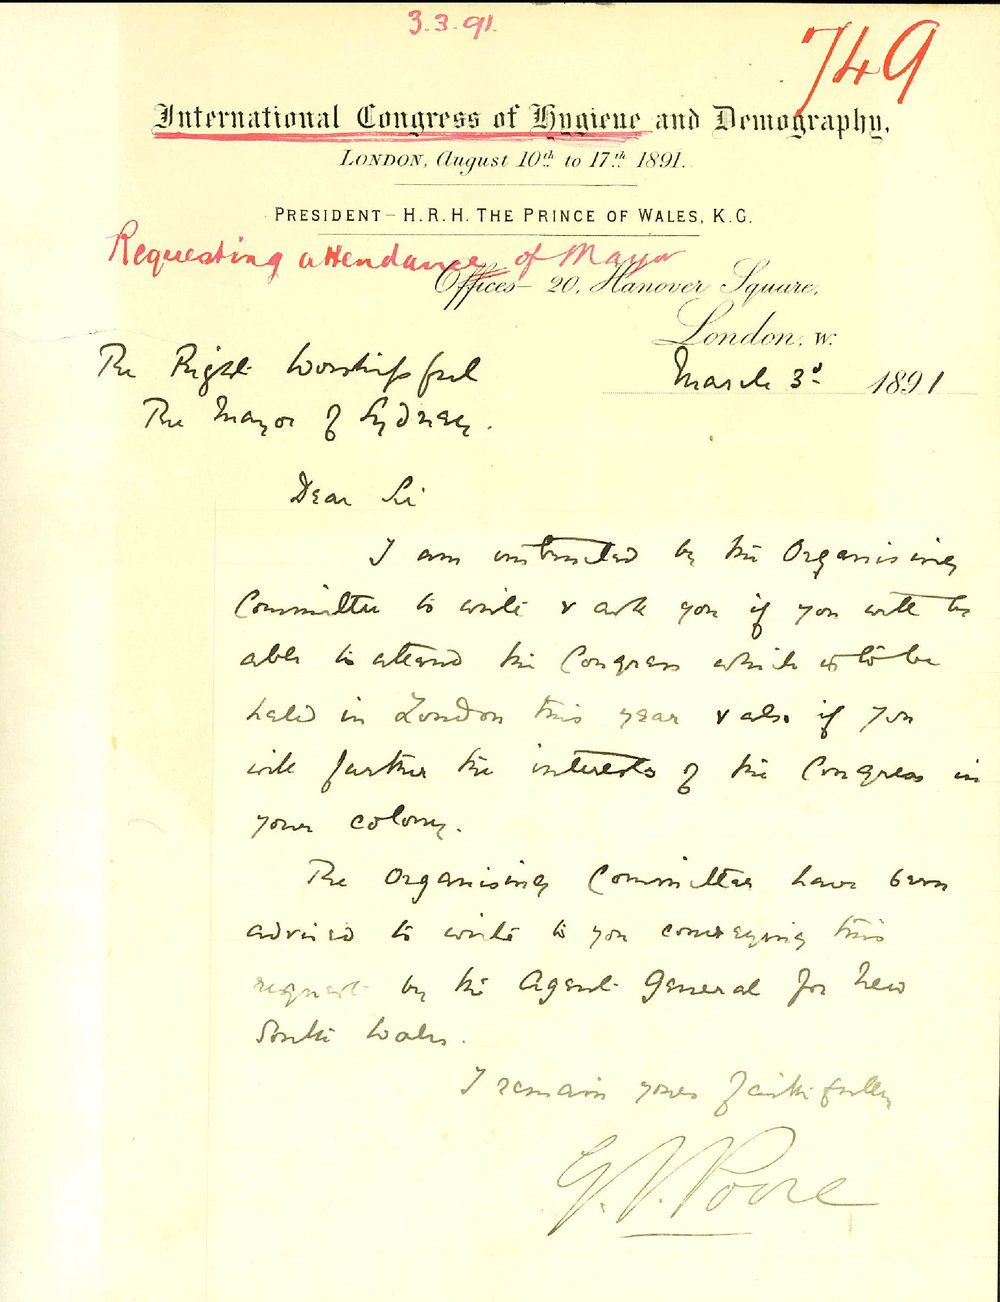 3.3.91.
749
International Congress of Hygiene and Demography.
LONDON, August 10th to 17th 1891.
PRESIDENT – H.R.H. THE PRINCE OF WALES, K.G.
Requesting attendance of Mayor
Offices – 20, Hanover Square,
London, W.
March 3d 1891
The Right Worshipful
The Mayor of Sydney.
Dear Sir
I am instructed by the Organising
Committee to write & ask you if you will be
able to attend the Congress which is to be
held in London this year & also if you
will further the interests of the Congress in
your colony.
The Organising Committee have been
advised to write to you conveying this
request by the Agent General for New
South Wales.
I remain yours faithfully
G. V. Poore